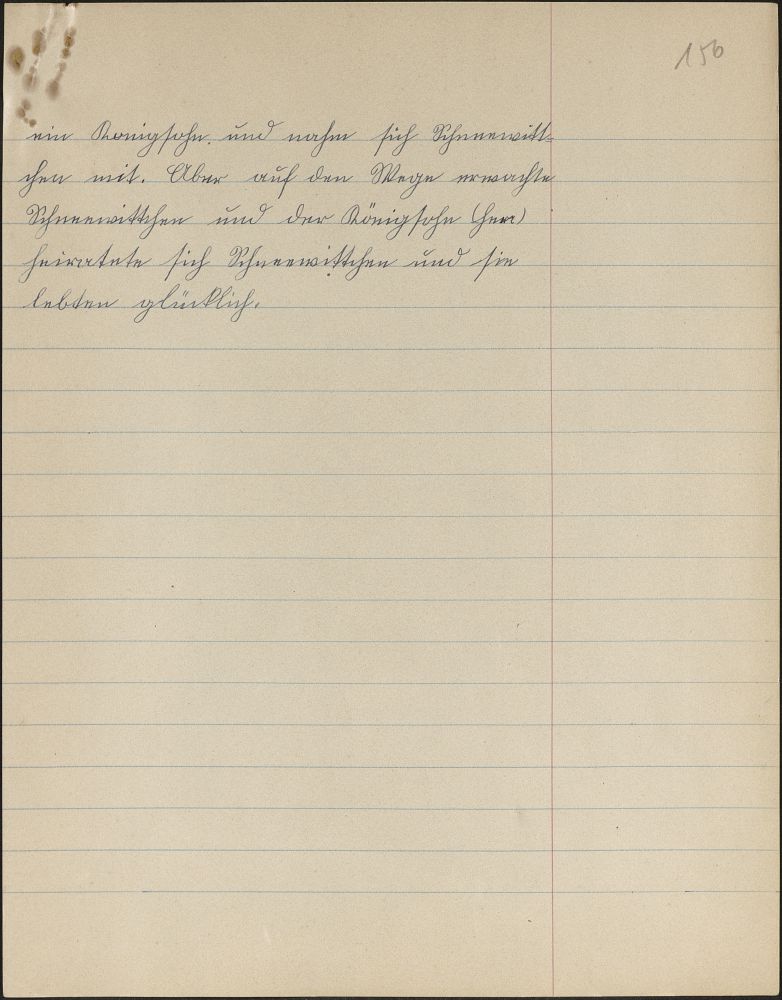 156
ein Konigsohn. und nahm sich Schneewitt-
chen mit. Aber auf den Wege erwachte
Schneewittchen und der Königsohn (her)
heiratete sich Schneewittchen und sie
lebten glücklich.